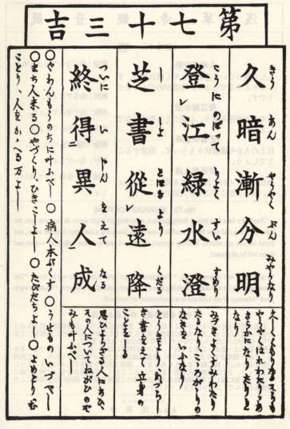 第七十三吉
久暗漸分明
きう あん やうやく ぶん みやうなり
やうやくはれわたりてあき
らかに なりたりとも
なり
登江緑水澄
こうにのぼつて りよく すい すめり
たるなり、こゝろがかりの
なきをいふなり
芝書從遠降
し しよ とほきより くだる
とうきより、めづらし
き書をえて 立身の
ことをしる
終得異人成
ついに い じん をえて なる
思ひよらざる人にあひて
その人についてねがひのぞ
みも叶ふべし
○ぐわんもうのちに叶ふべし ○病人本ぷくす○うせものいづべし
○まち人来る○やづくり、ひきこしよし ○たびだちよし ○よめとり、むこ
とり、人をかゝへる万よし